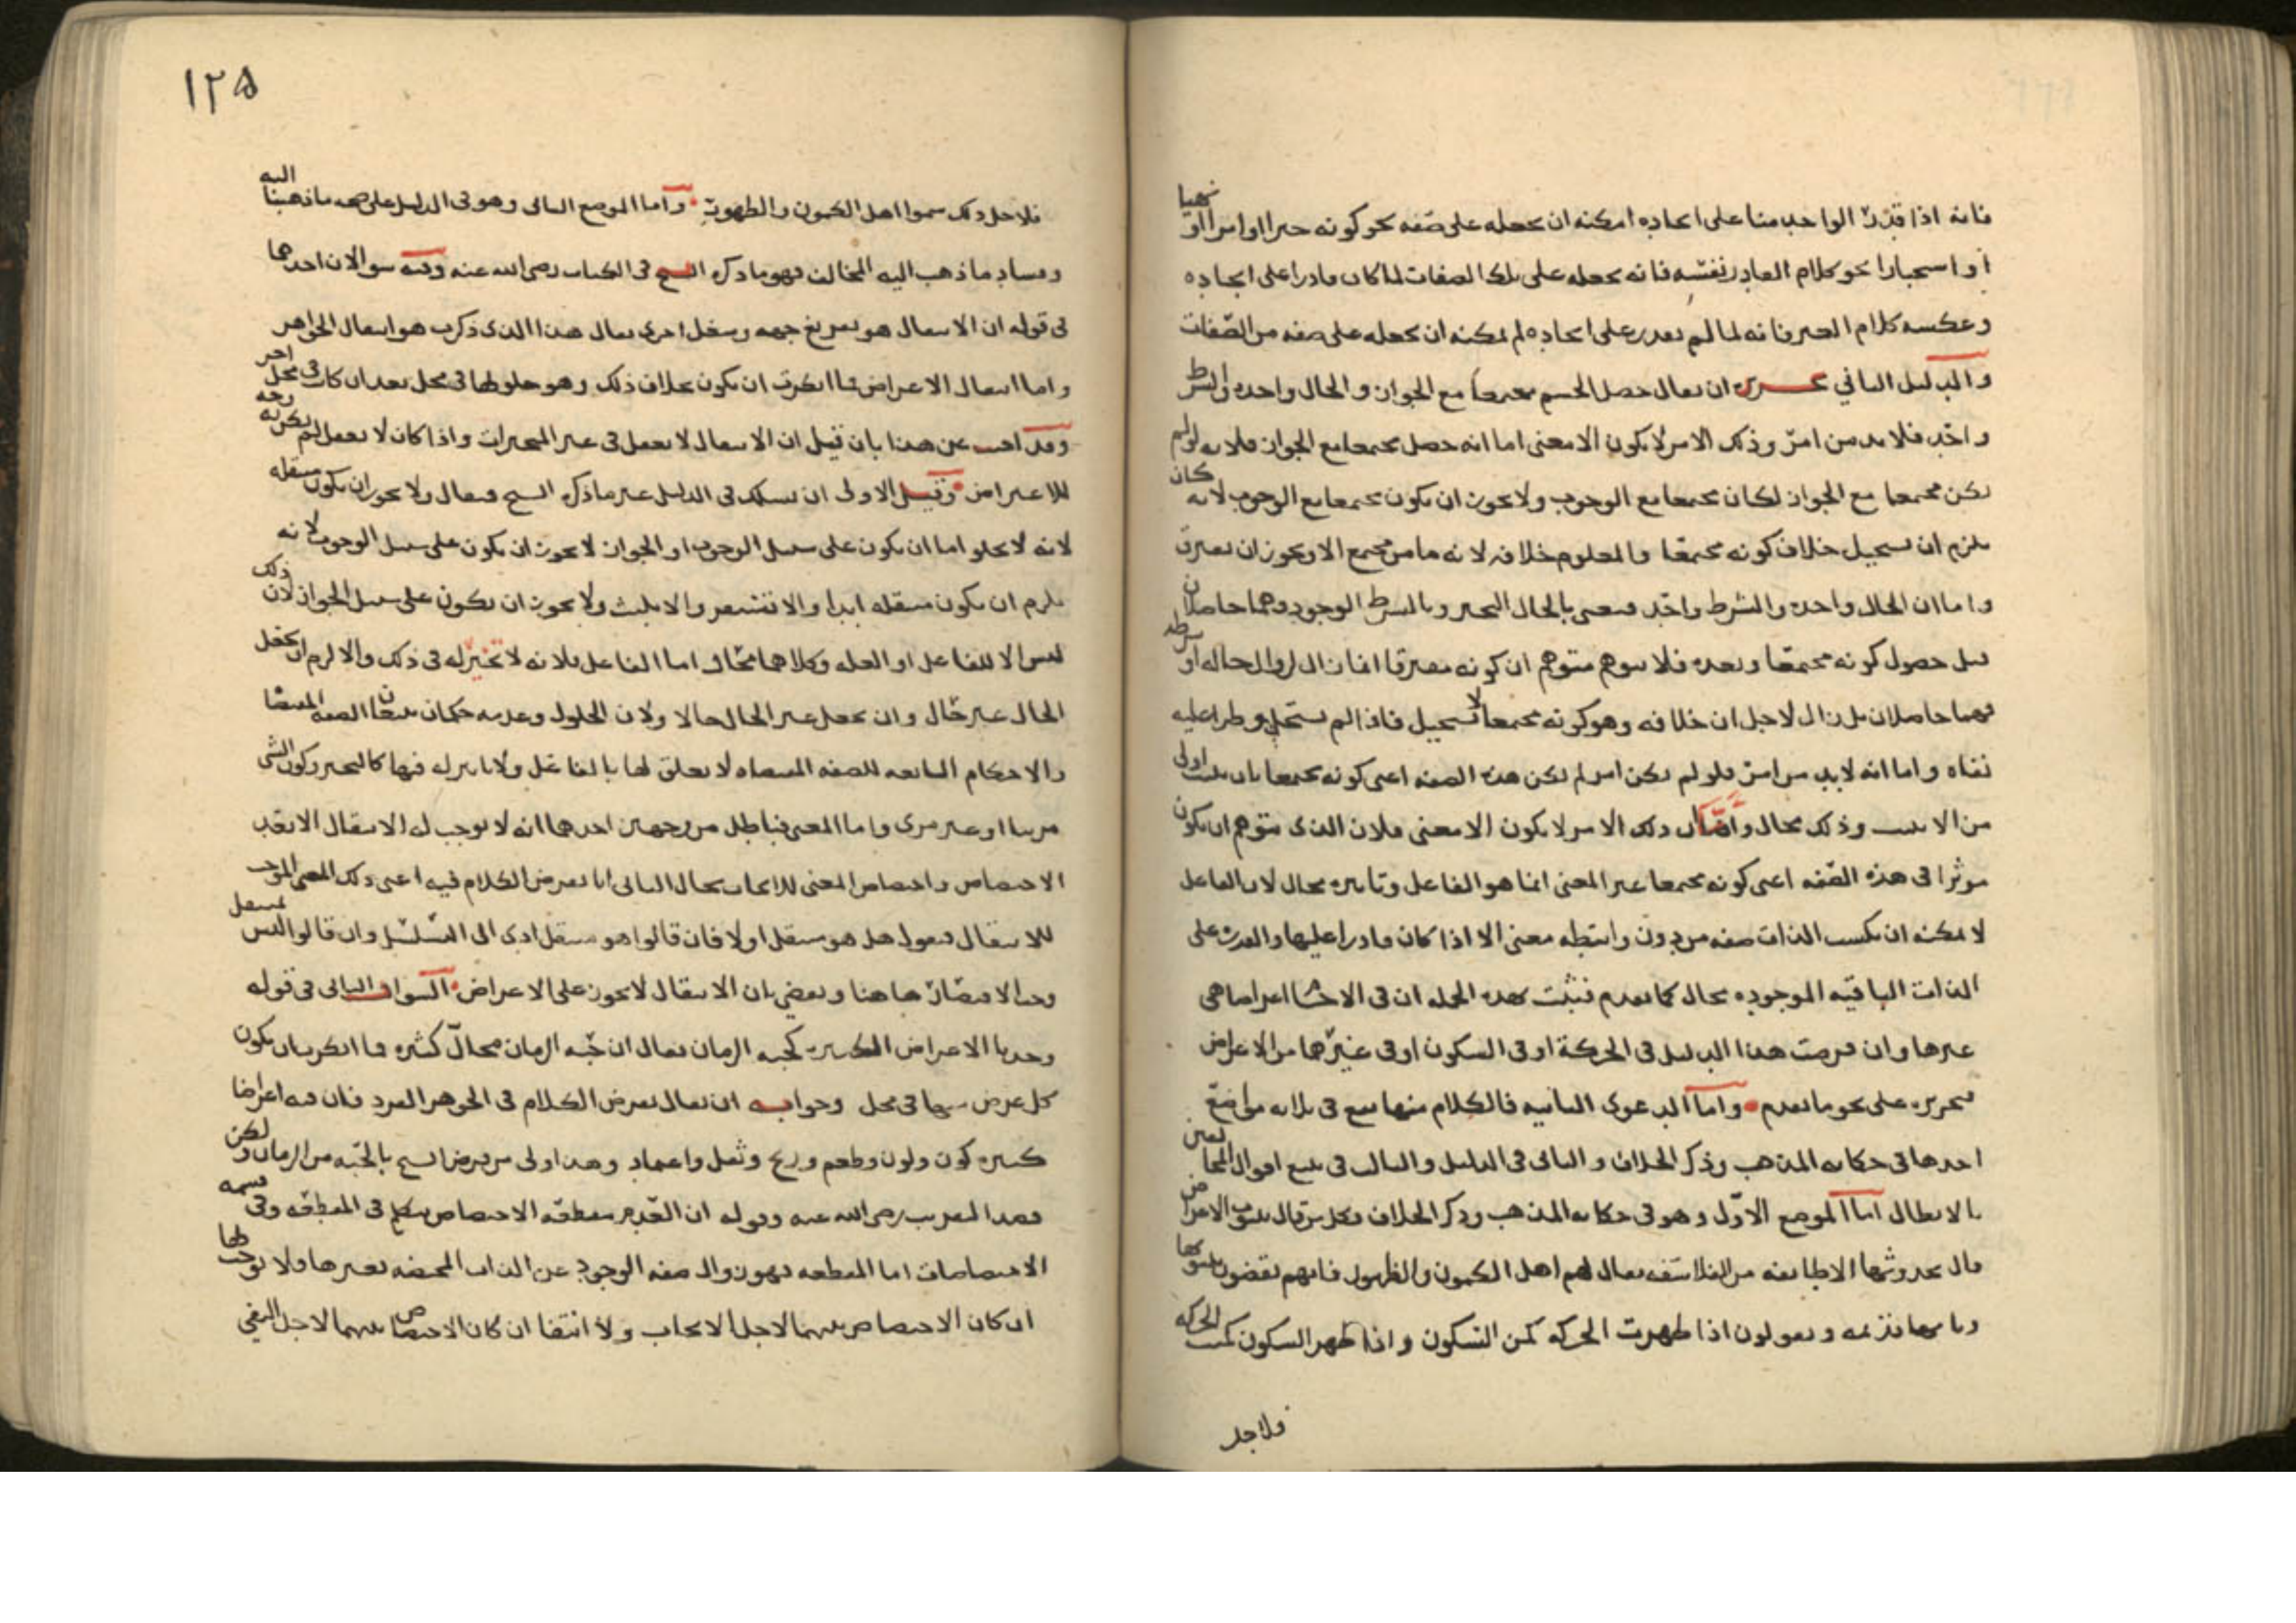 فانه اذا قدر الواحد منا على ايجاده امكنه ان يجعله على صفه نحو كونه خبرا او امرا او نهيا
او استخبارا نحو كلام القادر نفسه فانه يجعله على تلك الصفات لما كان قادرا على ايجاده
وعكسه كلام الغير فانه لما لم يقدر على ايجاده لم يمكنه ان يجعله على صفه من الصفات
والدليل الثاني تحريره ان يقال حصل الجسم مجتمعا مع الجواز والحال واحده والشرط
واحد فلا بد من امر وذلك الامر لا يكون الا معنى اما انه حصل مجتمعا مع الجواز فلانه لو لم
يكن مجتمعا مع الجواز لكان مجتمعا مع الوجوب ولا يجوز ان يكون مجتمعا مع الوجوب لانه كان
يلزم ان يستحيل خلاف كونه مجتمعا والمعلوم خلافه لانه ما من مجتمع الا ويجوز ان يفترق
واما ان الحال واحده والشرط واحد فنعني بالحال التحيز وبالشرط الوجود وهما حاصلان
قبل حصول كونه مجتمعا وبعده فلا يتوهم متوهم ان كونه مفترقا انما زال لزوال حاله او شرطه
فهما حاصلان بل زال لاجل ان خلافه وهو كونه مجتمعا لا يستحيل فاذا لم يستحل وطرا عليه
نفاه واما انه لا بد من امر فلو لم يكن امر لم تكن هذه الصفه اعني كونه مجتمعا بان تثبت اولى
من الا تثبت وذلك محال واما ان ذلك الامر لا يكون الا معنى فلان الذي يتوهم ان يكون
موثرا في هذه الصفه اعني كونه مجتمعا غير المعنى انما هو الفاعل وتاثيره محال لان الفاعل
لا يمكنه ان يكسب الذات صفه من دون واسطه معنى الا اذا كان قادرا عليها والقدره على
الذات الباقيه الموجوده محال كما تقدم فثبت بهذه الجمله ان في الاجسام اعراضا هي
غيرها وان فرضت هذا الدليل في الحركة او في السكون او في غيرهما من الاعراض
فتحريره على نحو ما تقدم واما الدعوى الثانيه فالكلام منها يقع في ثلاثه مواضع
احدها في حكايه المذهب وذكر الخلاف والثاني في الدليل والثالث في تتبع اقوال المخالفين
بالابطال اما الموضع الاول وهو في حكايه المذهب وذكر الخلاف فكل من قال بثبوت الاعراض
قال بحدوثها الا طايفه من الفلاسفه يقال لهم اهل الكمون والظهور فانهم يقضون بثبوتها
وبانها قديمه ويقولون اذا ظهرت الحركه كمن السكون واذا ظهر السكون كمنت الحركه
فلاجل
١٢٥
فلاجل ذلك سموا اهل الكمون والظهور واما الموضع الثاني وهو في الدليل على صحه ما ذهبنا اليه
وفساد ما ذهب اليه المخالف فهو ما ذكره الشيخ في الكتاب رضي الله عنه وفيه سوالان احدهما
في قوله ان الانتقال هو تفريغ جهه وشغل اخرى يقال هذا الذي ذكرت هو انتقال الجواهر
واما انتقال الاعراض فما انكرت ان يكون بخلاف ذلك وهو حلولها في محل بعد ان كانت في محل اخر
وقد اجيب عن هذا بان قيل ان الانتقال لا يعقل في غير المتحيزات واذا كان لا يعقل لم يكن
للاعراض وقيل الاولى ان نسلك في الدليل غير ما ذكره الشيخ فيقال ولا يجوز ان يكون منتقله
لانه لا يخلو اما ان يكون على سبيل الوجوب او الجواز لا يجوز ان يكون على سبيل الوجوب لانه
يلزم ان يكون منتقله ابدا والا تستقر والا تلبث ولا يجوز ان يكون على سبيل الجواز لان ذلك
ليس الا للفاعل او العله وكلاهما محال اما الفاعل فلانه لا تخير له في ذلك والا لزم ان يجعل
الحال غير حال وان يجعل غير الحال حالا ولان الحلول وعدمه حكمان يتبعان الصفه المقتضا
والاحكام التابعه للصفه المقتضاه لا تعلق لها بالفاعل ولا تاثير له فيها كالتحيز وكون الشي
مرئيا او غير مرئي واما المعنى فباطل من وجهين احدهما انه لا يوجب له الانتقال الا بعد
الاختصاص واختصاص المعنى للايجاب محال الثاني انا نفرض الكلام فيه اعني ذلك المعنى الموجب
للانتقال فنقول هل هو منتقل او لا فان قالوا هو منتقل ادى الى التسلسل وان قالوا ليس بمنتقل
وجب الاقتصار هاهنا ونقضي بان الانتقال لا يجوز على الاعراض السوال الثاني في قوله
وجدنا الاعراض الكثيره كحبه الرمان يقال ان حبه الرمان محال كثيره فما انكرت ان يكون
كل عرض منها في محل وجوابه ان يقال نفرض الكلام في الجوهر الفرد فان فيه اعراضا
كثيره كون ولون وطعم وريح وثقل واعتماد وهذا اولى من فرض الشيخ بالحبه من الرمان ولكن
قصد التقريب رضي الله عنه وقوله ان القديم منقطعه الاختصاص نتكلم في المنقطعه وفي قسمه
الاختصاصات اما المنقطعه فهو زوال صفه الوجود عن الذات المختصه بغيرها ولا يوجب لها
ان كان الاختصاص بينهما لاجل الايجاب ولا انتفا ان كان الاختصاص بينهما لاجل النفي